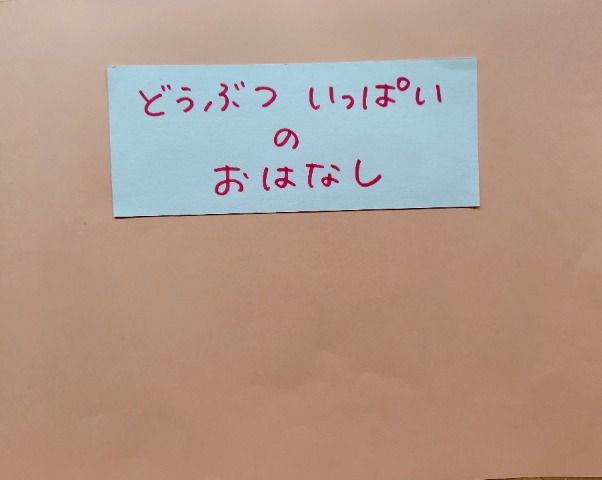 どうぶつ いっぱい
の
おはなし